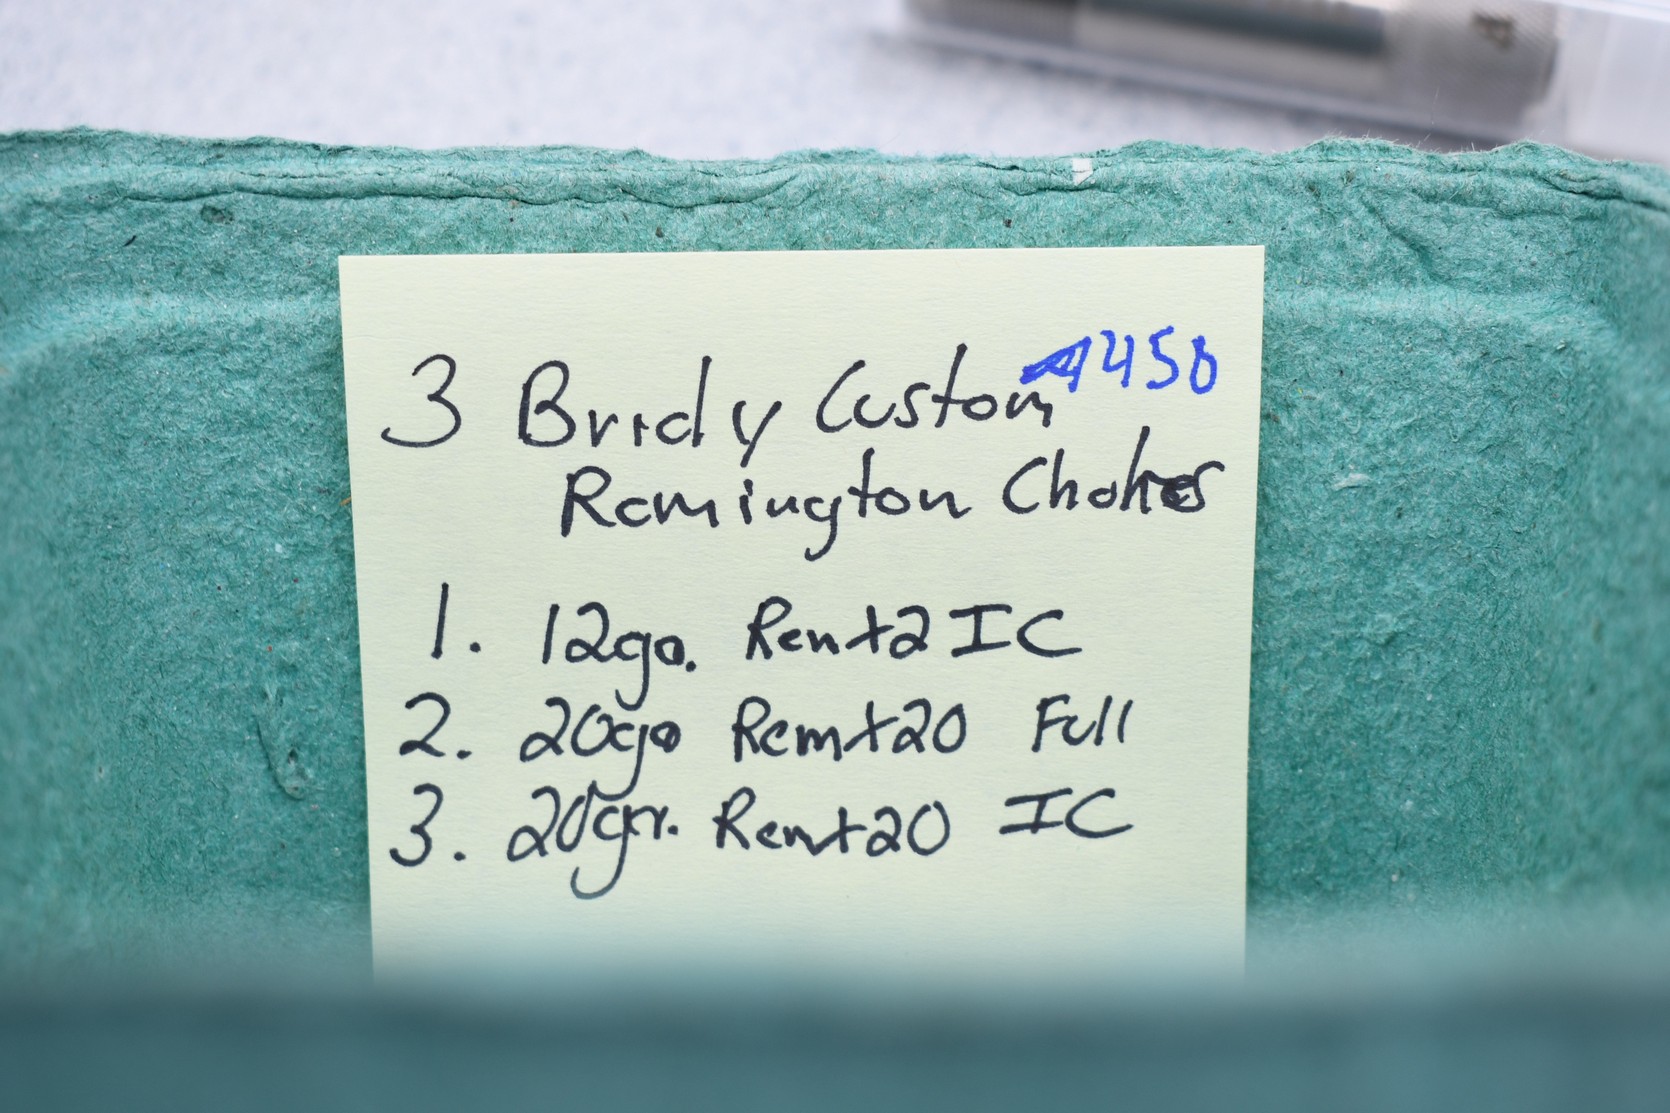 1450
3 Bridy Custom
Remington Chokes
1. 12ga. Remt2 IC
2. 20ga Remt20 Full
3. 20ga. Remt20 IC